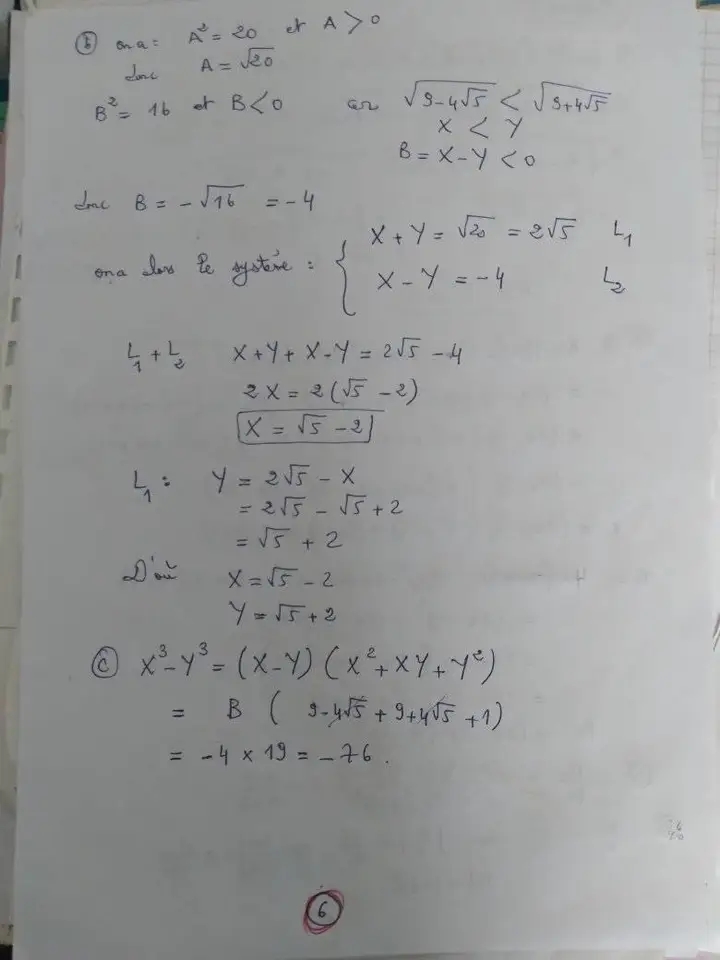 ⓑ on a : A² = 20 et A > 0
donc A = √20
B² = 16 et B < 0 car √(9-4√5) < √(9+4√5)
X < Y
B = X - Y < 0
donc B = -√16 = -4
on a alors le système : { X + Y = √20 = 2√5 L₁
X - Y = -4 L₂
L₁ + L₂ X + Y + X - Y = 2√5 - 4
2X = 2(√5 - 2)
X = √5 - 2
L₁ : Y = 2√5 - X
= 2√5 - √5 + 2
= √5 + 2
D'où X = √5 - 2
Y = √5 + 2
ⓒ X³ - Y³ = (X - Y) (X² + XY + Y²)
= B ( 9 - 4√5 + 9 + 4√5 + 1)
= -4 × 19 = -76.
6